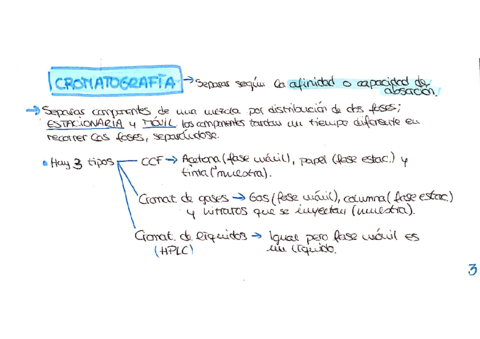 CROMATOGRAFÍA → Separar según la afinidad o capacidad de
absorción.
→ Separar componentes de una mezcla por distribución de dos fases;
ESTACIONARIA y MÓVIL los componentes tardan un tiempo diferente en
recorrer las fases, separándose.
• Hay 3 tipos CCF → Acetona (fase móvil), papel (fase estac.) y
tinta ("muestra).
Cromat. de gases → Gas (fase móvil), columna (fase estac.)
y nitratos que se inyectan (muestra).
Cromat. de líquidos → Igual pero fase móvil es
(HPLC) un líquido.
3